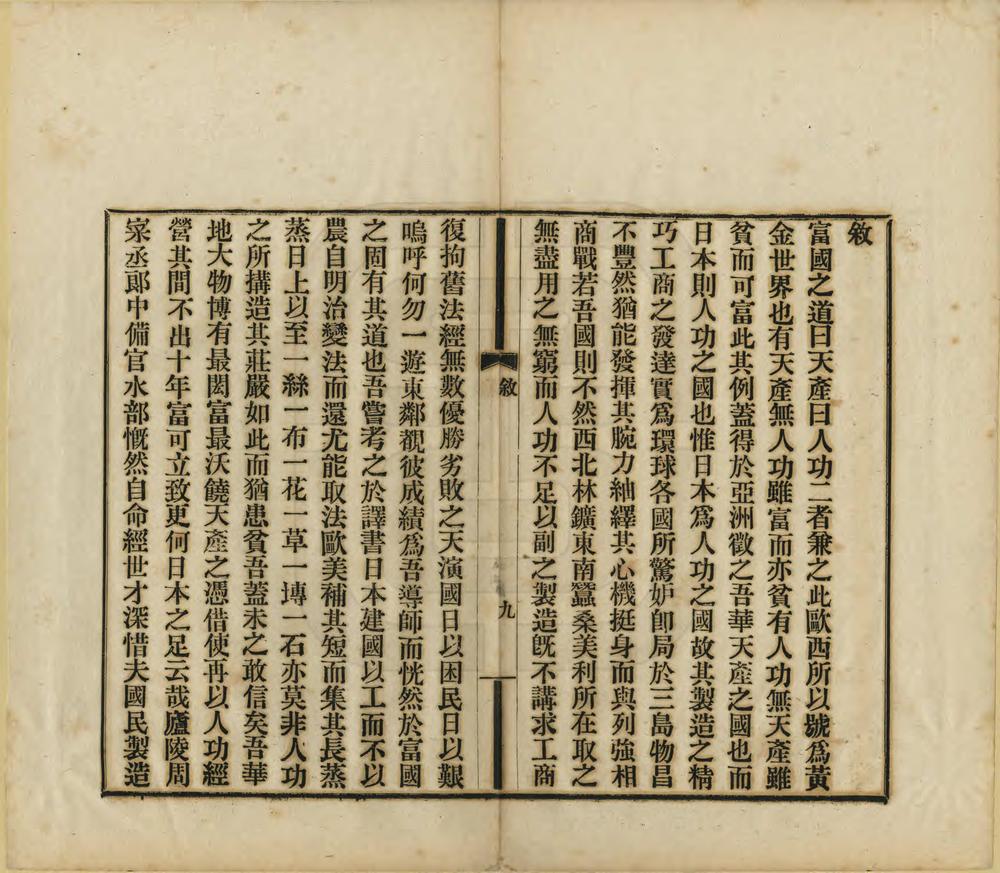 敘
富國之道曰天產曰人功二者兼之此歐西所以號爲黃
金世界也有天產無人功雖富而亦貧有人功無天產雖
貧而可富此其例蓋得於亞洲徵之吾華天產之國也而
日本則人功之國也惟日本爲人功之國故其製造之精
巧工商之發達實爲環球各國所驚妒卽局於三島物昌
不豐然猶能發揮其腕力紬繹其心機挺身而與列強相
商戰若吾國則不然西北林鑛東南蠶桑美利所在取之
無盡用之無窮而人功不足以副之製造旣不講求工商
敘
九
復拘舊法經無數優勝劣敗之天演國日以困民日以艱
嗚呼何勿一遊東鄰覩彼成績爲吾導師而恍然於富國
之固有其道也吾嘗考之於譯書日本建國以工而不以
農自明治變法而還尤能取法歐美補其短而集其長蒸
蒸日上以至一絲一布一花一草一塼一石亦莫非人功
之所搆造其莊嚴如此而猶患貧吾蓋未之敢信矣吾華
地大物博有最閎富最沃饒天產之憑借使再以人功經
營其間不出十年富可立致更何日本之足云哉廬陵周
寀丞郞中備官水部慨然自命經世才深惜夫國民製造